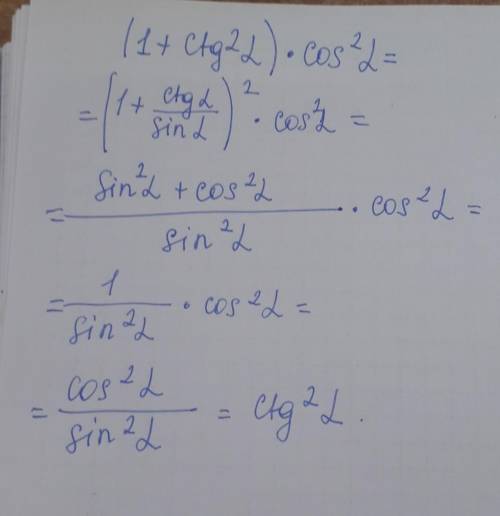 (1 + ctg²α) · cos²α =
= (1 + ctgα/sinα)² · cos²α =
= (sin²α + cos²α)/sin²α · cos²α =
= 1/sin²α · cos²α =
= cos²α/sin²α = ctg²α.